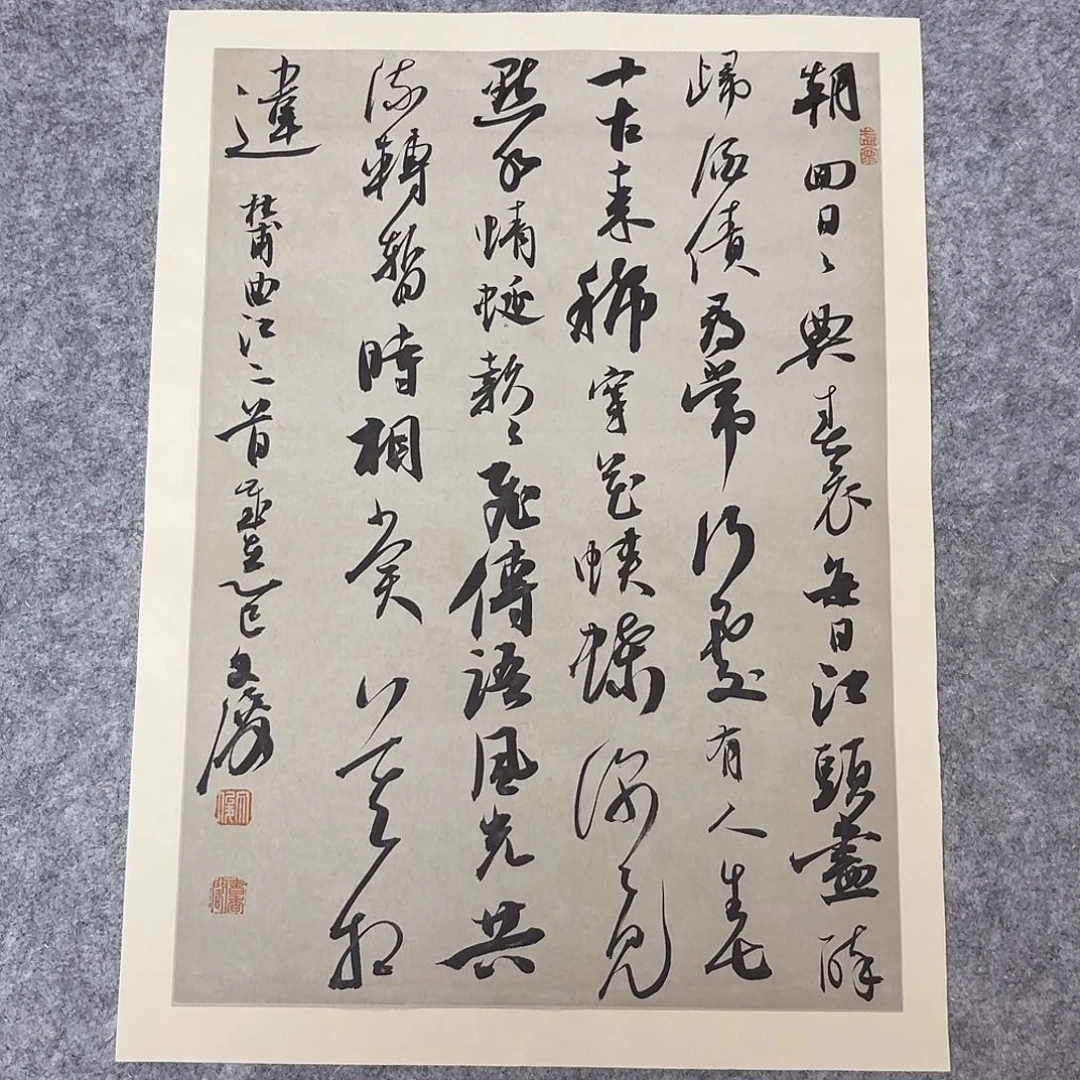 朝回日〻典春衣每日江頭盡醉
歸酒債尋常行處有人生七
十古来稀穿花蛺蝶深〻見
點水蜻蜓款〻飛傳語風光共
流轉暫時相賞莫相
違
杜甫曲江二首